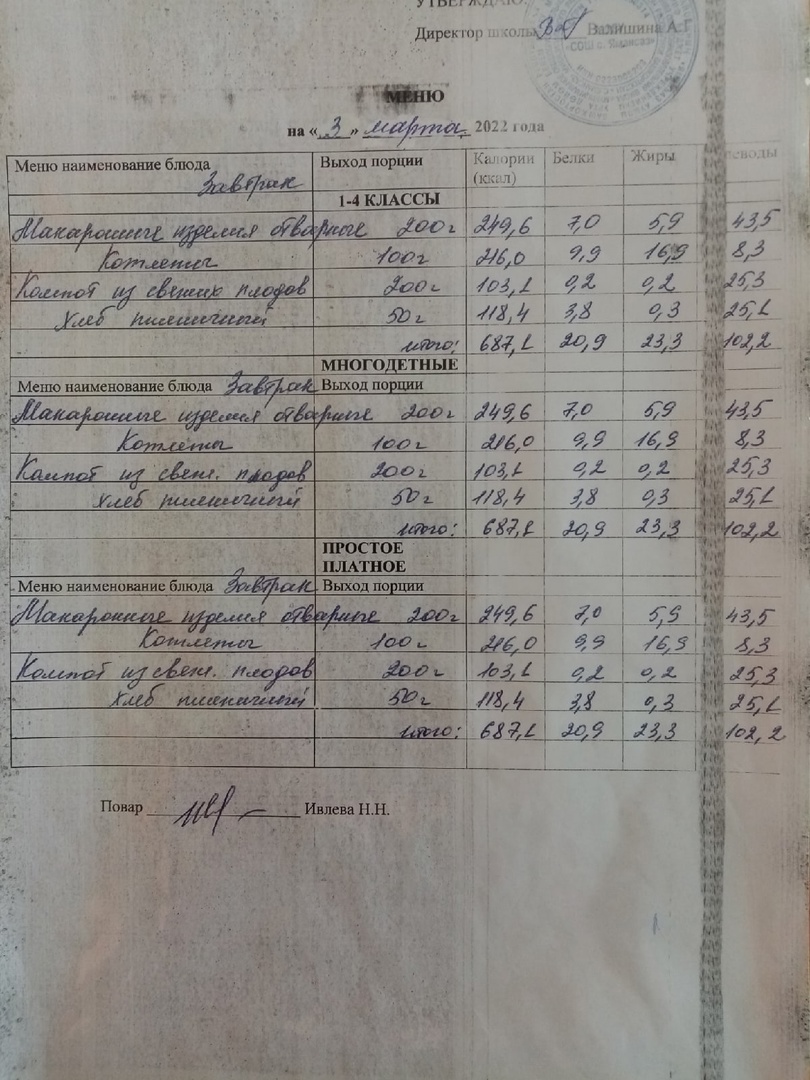 УТВЕРЖДАЮ:
Директор школы Валишина А.Г
«СОШ с.
МЕНЮ
на « 3 » марта 2022 года
Меню наименование блюда Завтрак Выход порции Калории (ккал) Белки Жиры леводы
1-4 КЛАССЫ
Макаронные изделия отварные 200г 249,6 7,0 5,9 43,5
Котлеты 100г 216,0 9,9 16,9 8,3
Компот из свежих плодов 200г 103,1 0,2 0,2 25,3
Хлеб пшеничный 50г 118,4 3,8 0,3 25,1
итого: 687,1 20,9 23,3 102,2
МНОГОДЕТНЫЕ
Меню наименование блюда Завтрак Выход порции
Макаронные изделия отварные 200г 249,6 7,0 5,9 43,5
Котлеты 100г 216,0 9,9 16,9 8,3
Компот из свеж. плодов 200г 103,1 0,2 0,2 25,3
Хлеб пшеничный 50г 118,4 3,8 0,3 25,1
итого: 687,1 20,9 23,3 102,2
ПРОСТОЕ
ПЛАТНОЕ
Меню наименование блюда Завтрак Выход порции
Макаронные изделия отварные 200г 249,6 7,0 5,9 43,5
Котлеты 100г 216,0 9,9 16,9 8,3
Компот из свеж. плодов 200г 103,1 0,2 0,2 25,3
Хлеб пшеничный 50г 118,4 3,8 0,3 25,1
итого: 687,1 20,9 23,3 102,2
Повар Ивлева Н.Н.